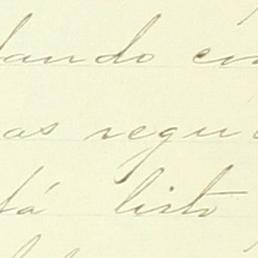 dando con
as regu
tá listo